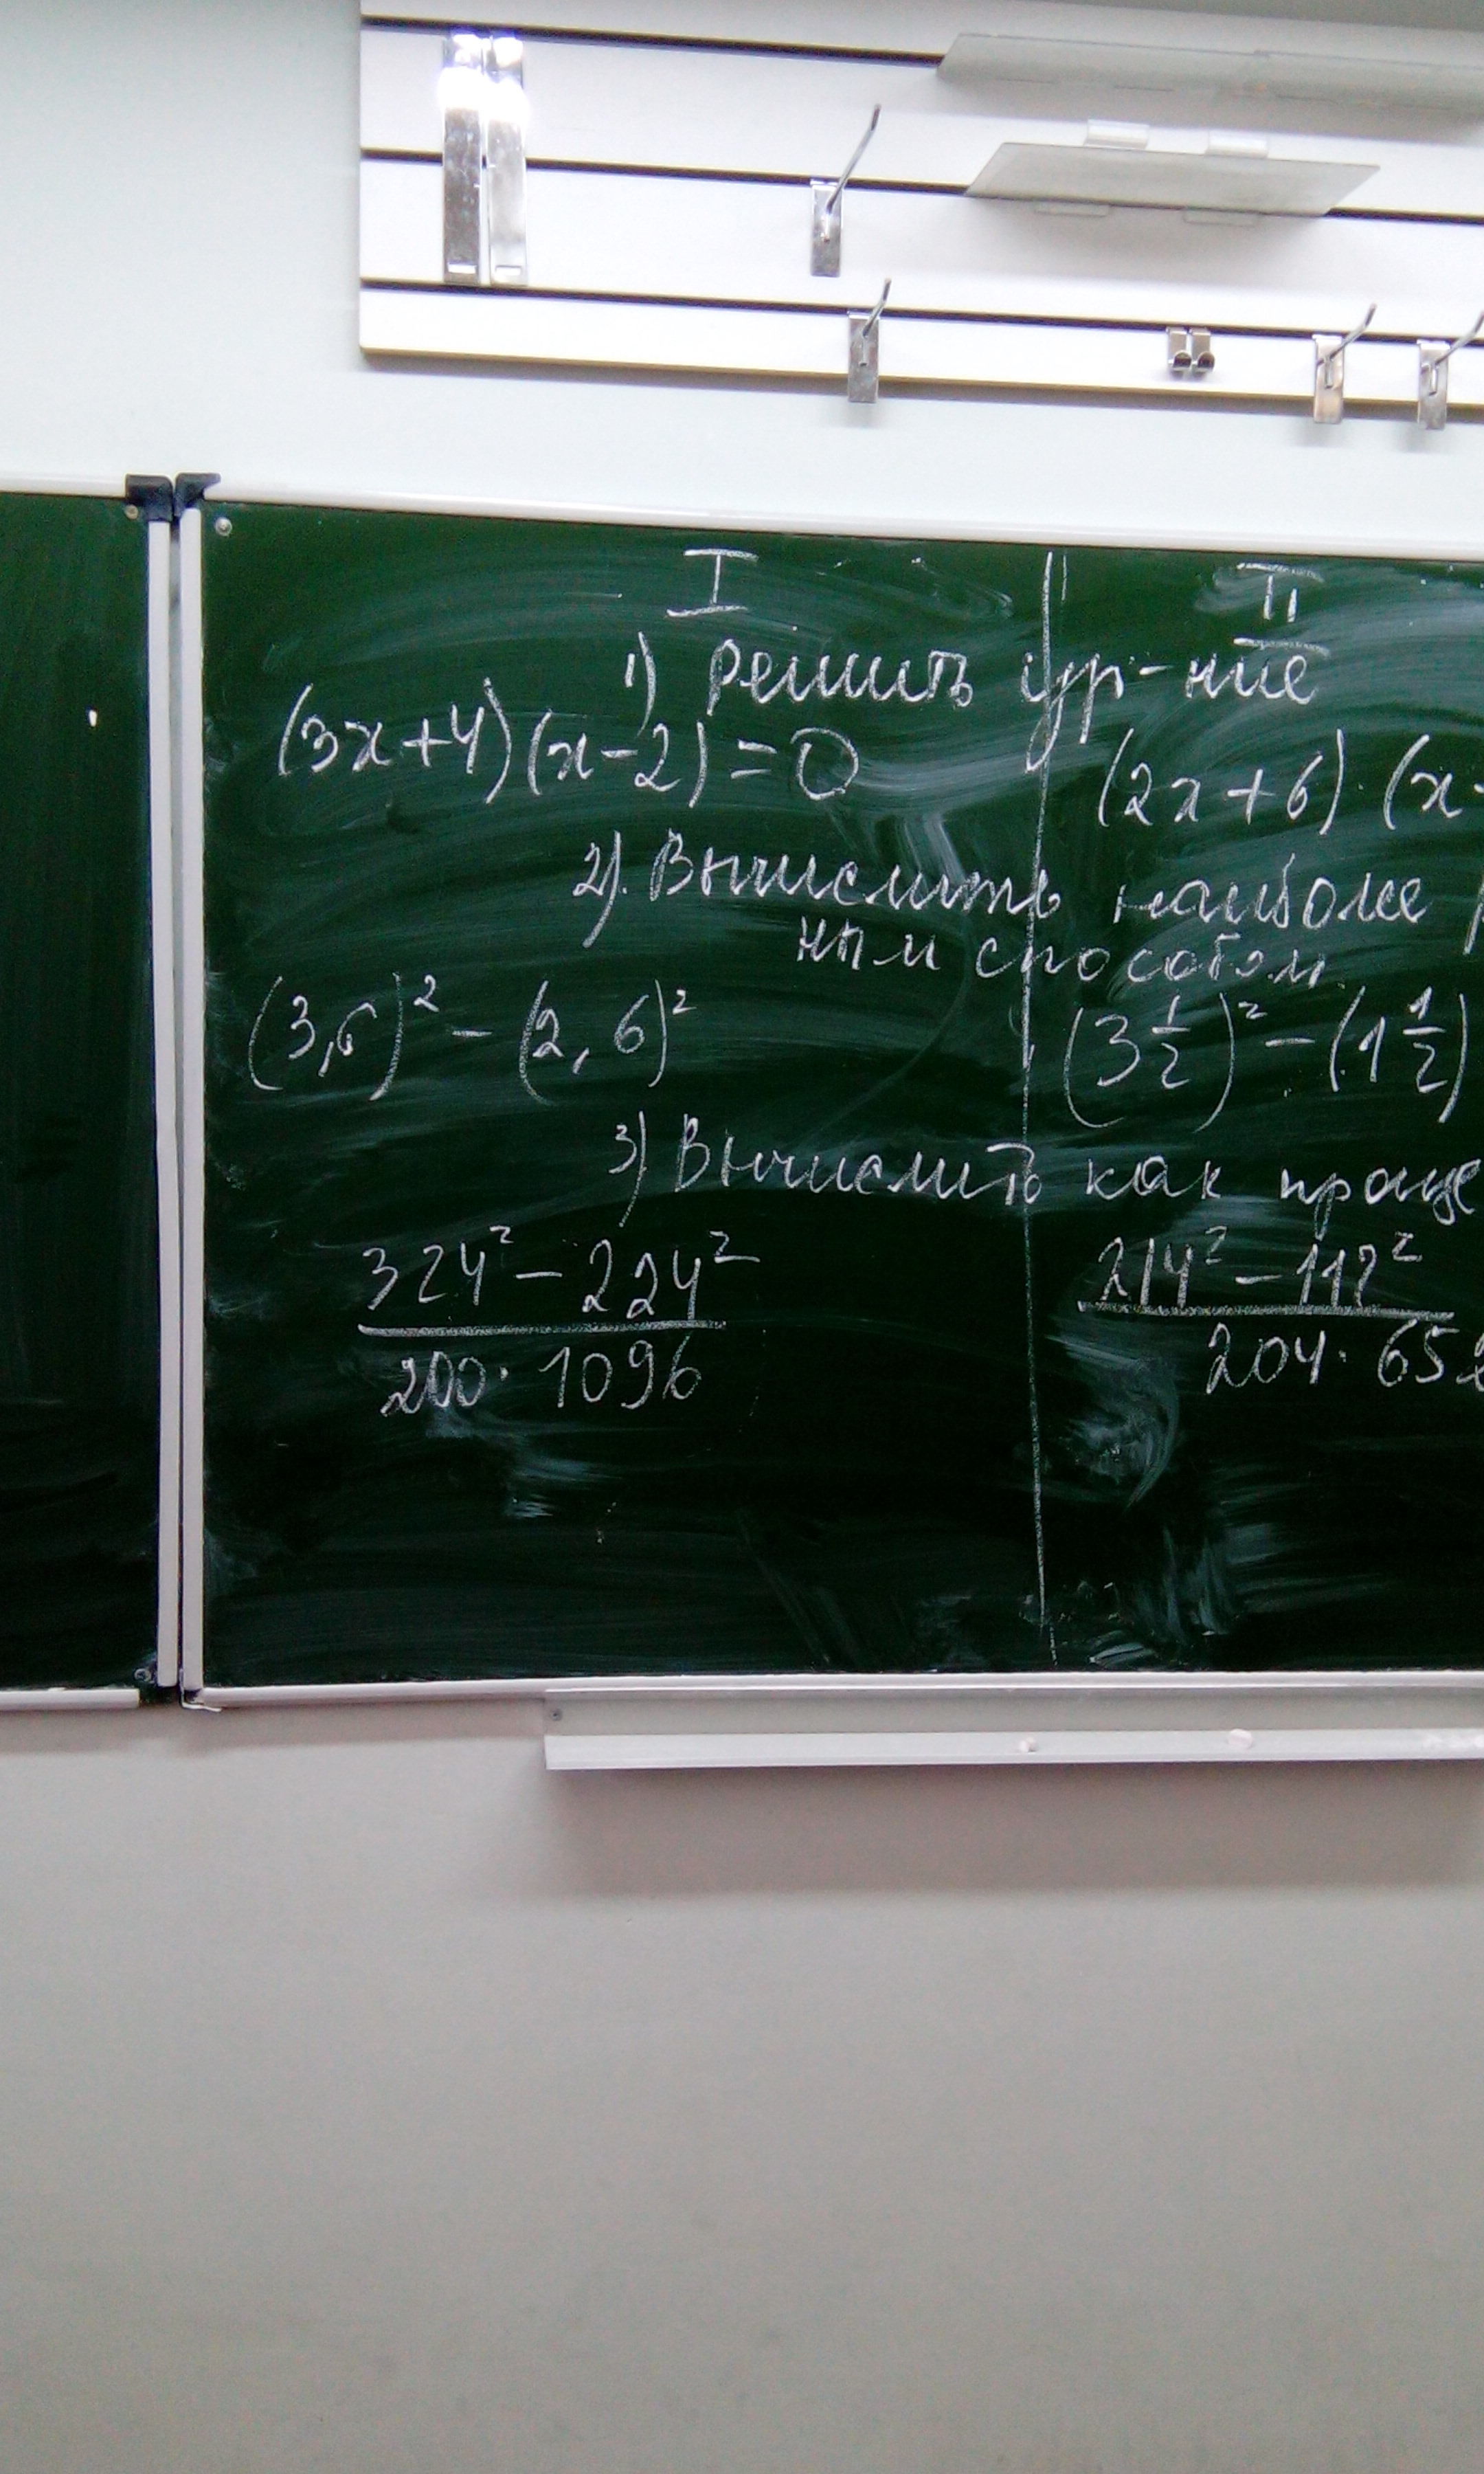 I II
1) Решить ур-ние
(3x+4)(x-2)=0 (2x+6)·(x-
2). Вычислить наиболее
ным способом
(3,6)² - (2,6)² (3 1/2)² - (1 1/2)
3) Вычислить как проще
324² - 224² 214² - 112²
200·1096 204·652